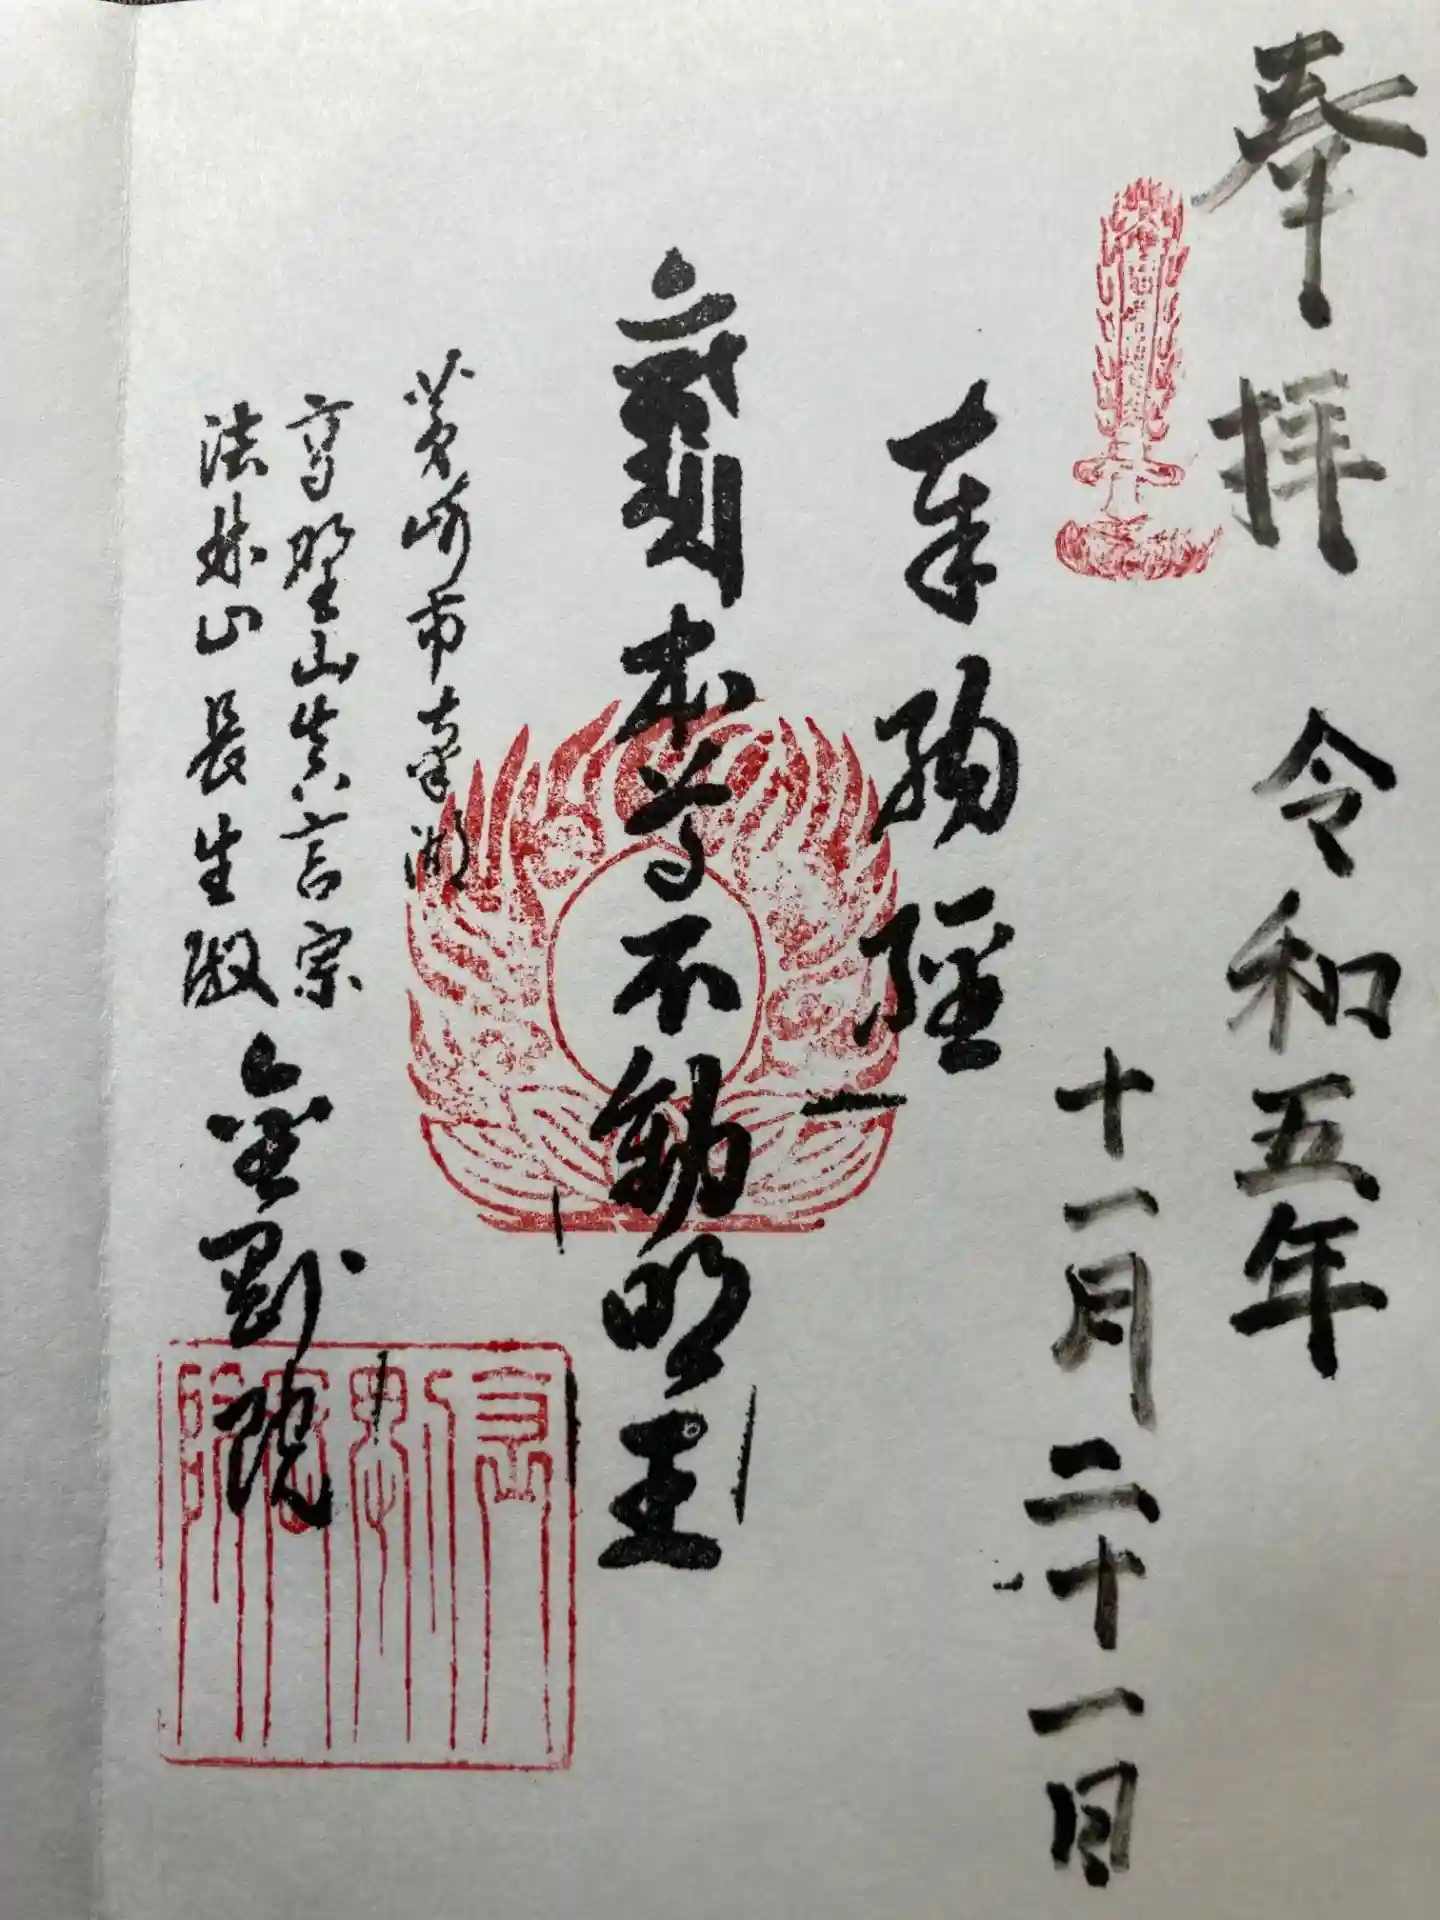 奉拝
令和五年
十一月二十一日
奉納経
本尊不動明王
茅崎市南湖
高野山真言宗
法林山長生殿 金剛院